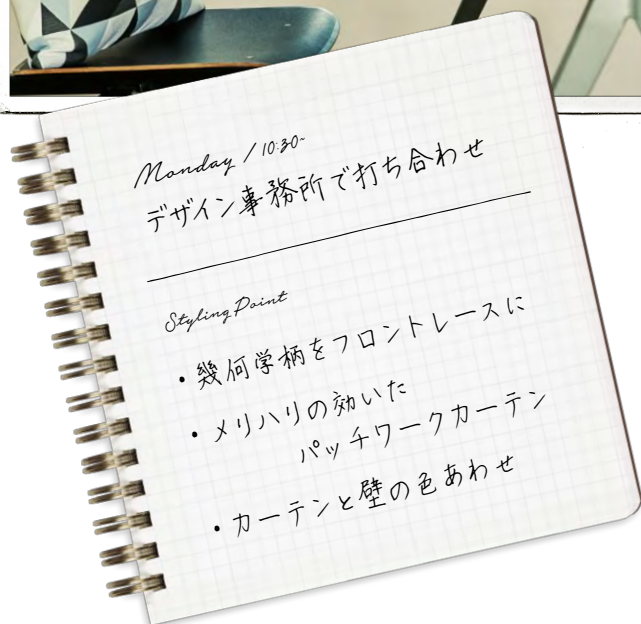 Monday / 10:30~
デザイン事務所で打ち合わせ
Styling Point
・幾何学柄をフロントレースに
・メリハリの効いた
パッチワークカーテン
・カーテンと壁の色あわせ